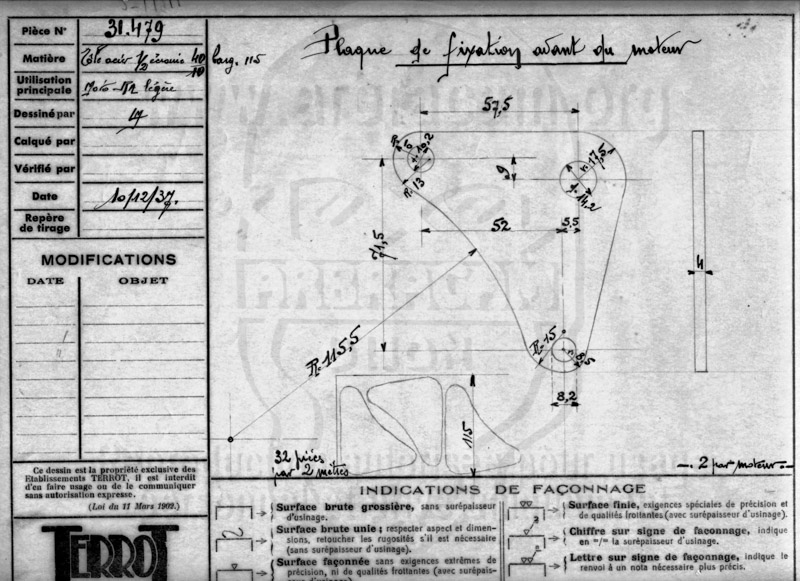 Pièce N° 31.479
Matière Tôle acier 1/2 40/10 larg. 115
Utilisation
principale Moto légère
Dessiné par
Calqué par
Vérifié par
Date 10/12/37.
Repère
de tirage
MODIFICATIONS
DATE OBJET
Ce dessin est la propriété exclusive des
Etablissements TERROT, il est interdit
d'en faire usage ou de le communiquer
sans autorisation expresse.
(Loi du 11 Mars 1902.)
TERROT
Plaque de fixation avant du moteur
57,5
R. 10
10,2
R. 13
9
R. 17,5
14,2
71,5
52
5,5
4
R. 115,5
R. 15
8,5
8,2
115
32 pièces
par 2 mètres
2 par moteur
INDICATIONS DE FAÇONNAGE
Surface brute grossière, sans surépaisseur
d'usinage.
Surface brute unie; respecter aspect et dimen-
sions, retoucher les rugosités s'il est nécessaire
(sans surépaisseur d'usinage).
Surface façonnée sans exigences extrêmes de
précision, ni de qualités frottantes (avec surépais-
Surface finie, exigences spéciales de précision et
de qualités frottantes (avec surépaisseur d'usinage).
Chiffre sur signe de faconnage, indique
en =/= la surépaisseur d'usinage.
Lettre sur signe de façonnage, indique le
renvoi à un nota nécessaire plus précis.